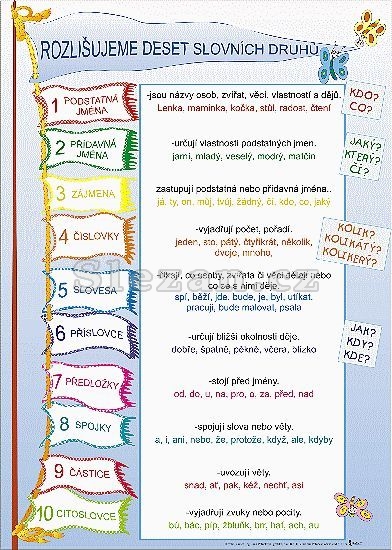 ROZLIŠUJEME DESET SLOVNÍCH DRUHŮ
1 PODSTATNÁ
JMÉNA
-jsou názvy osob, zvířat, věcí, vlastností a dějů.
Lenka, maminka, kočka, stůl, radost, čtení
KDO?
CO?
2 PŘÍDAVNÁ
JMÉNA
-určují vlastnosti podstatných jmen.
jarní, mladý, veselý, modrý, matčin
JAKÝ?
KTERÝ?
ČÍ?
3 ZÁJMENA
zastupují podstatná nebo přídavná jména..
já, ty, on, můj, tvůj, žádný, či, kdo, co, jaký
4 ČÍSLOVKY
-vyjadřují počet, pořadí.
jeden, sto, pátý, čtyřikrát, několik,
dvoje, mnoho,
KOLIK?
KOLIKÁTÝ?
KOLIKERÝ?
5 SLOVESA
-říkají, co osoby, zvířata či věci dělají nebo
co se s nimi děje.
spí, běží, jde, bude, je, byl, utíkat,
pracuji, bude malovat, psala
6 PŘÍSLOVCE
-určují bližší okolnosti děje.
dobře, špatně, pěkně, včera, blízko
JAK?
KDY?
KDE?
7 PŘEDLOŽKY
-stojí před jmény.
od, do, u, na, pro, o, za, před, nad
8 SPOJKY
-spojují slova nebo věty.
a, i, ani, nebo, že, protože, když, ale, kdyby
9 ČÁSTICE
-uvozují věty.
snad, ať, pak, kéž, nechť, asi
10 CITOSLOVCE
-vyjadřují zvuky nebo pocity.
bů, hác, píp, žbluňk, brr, haf, ach, au